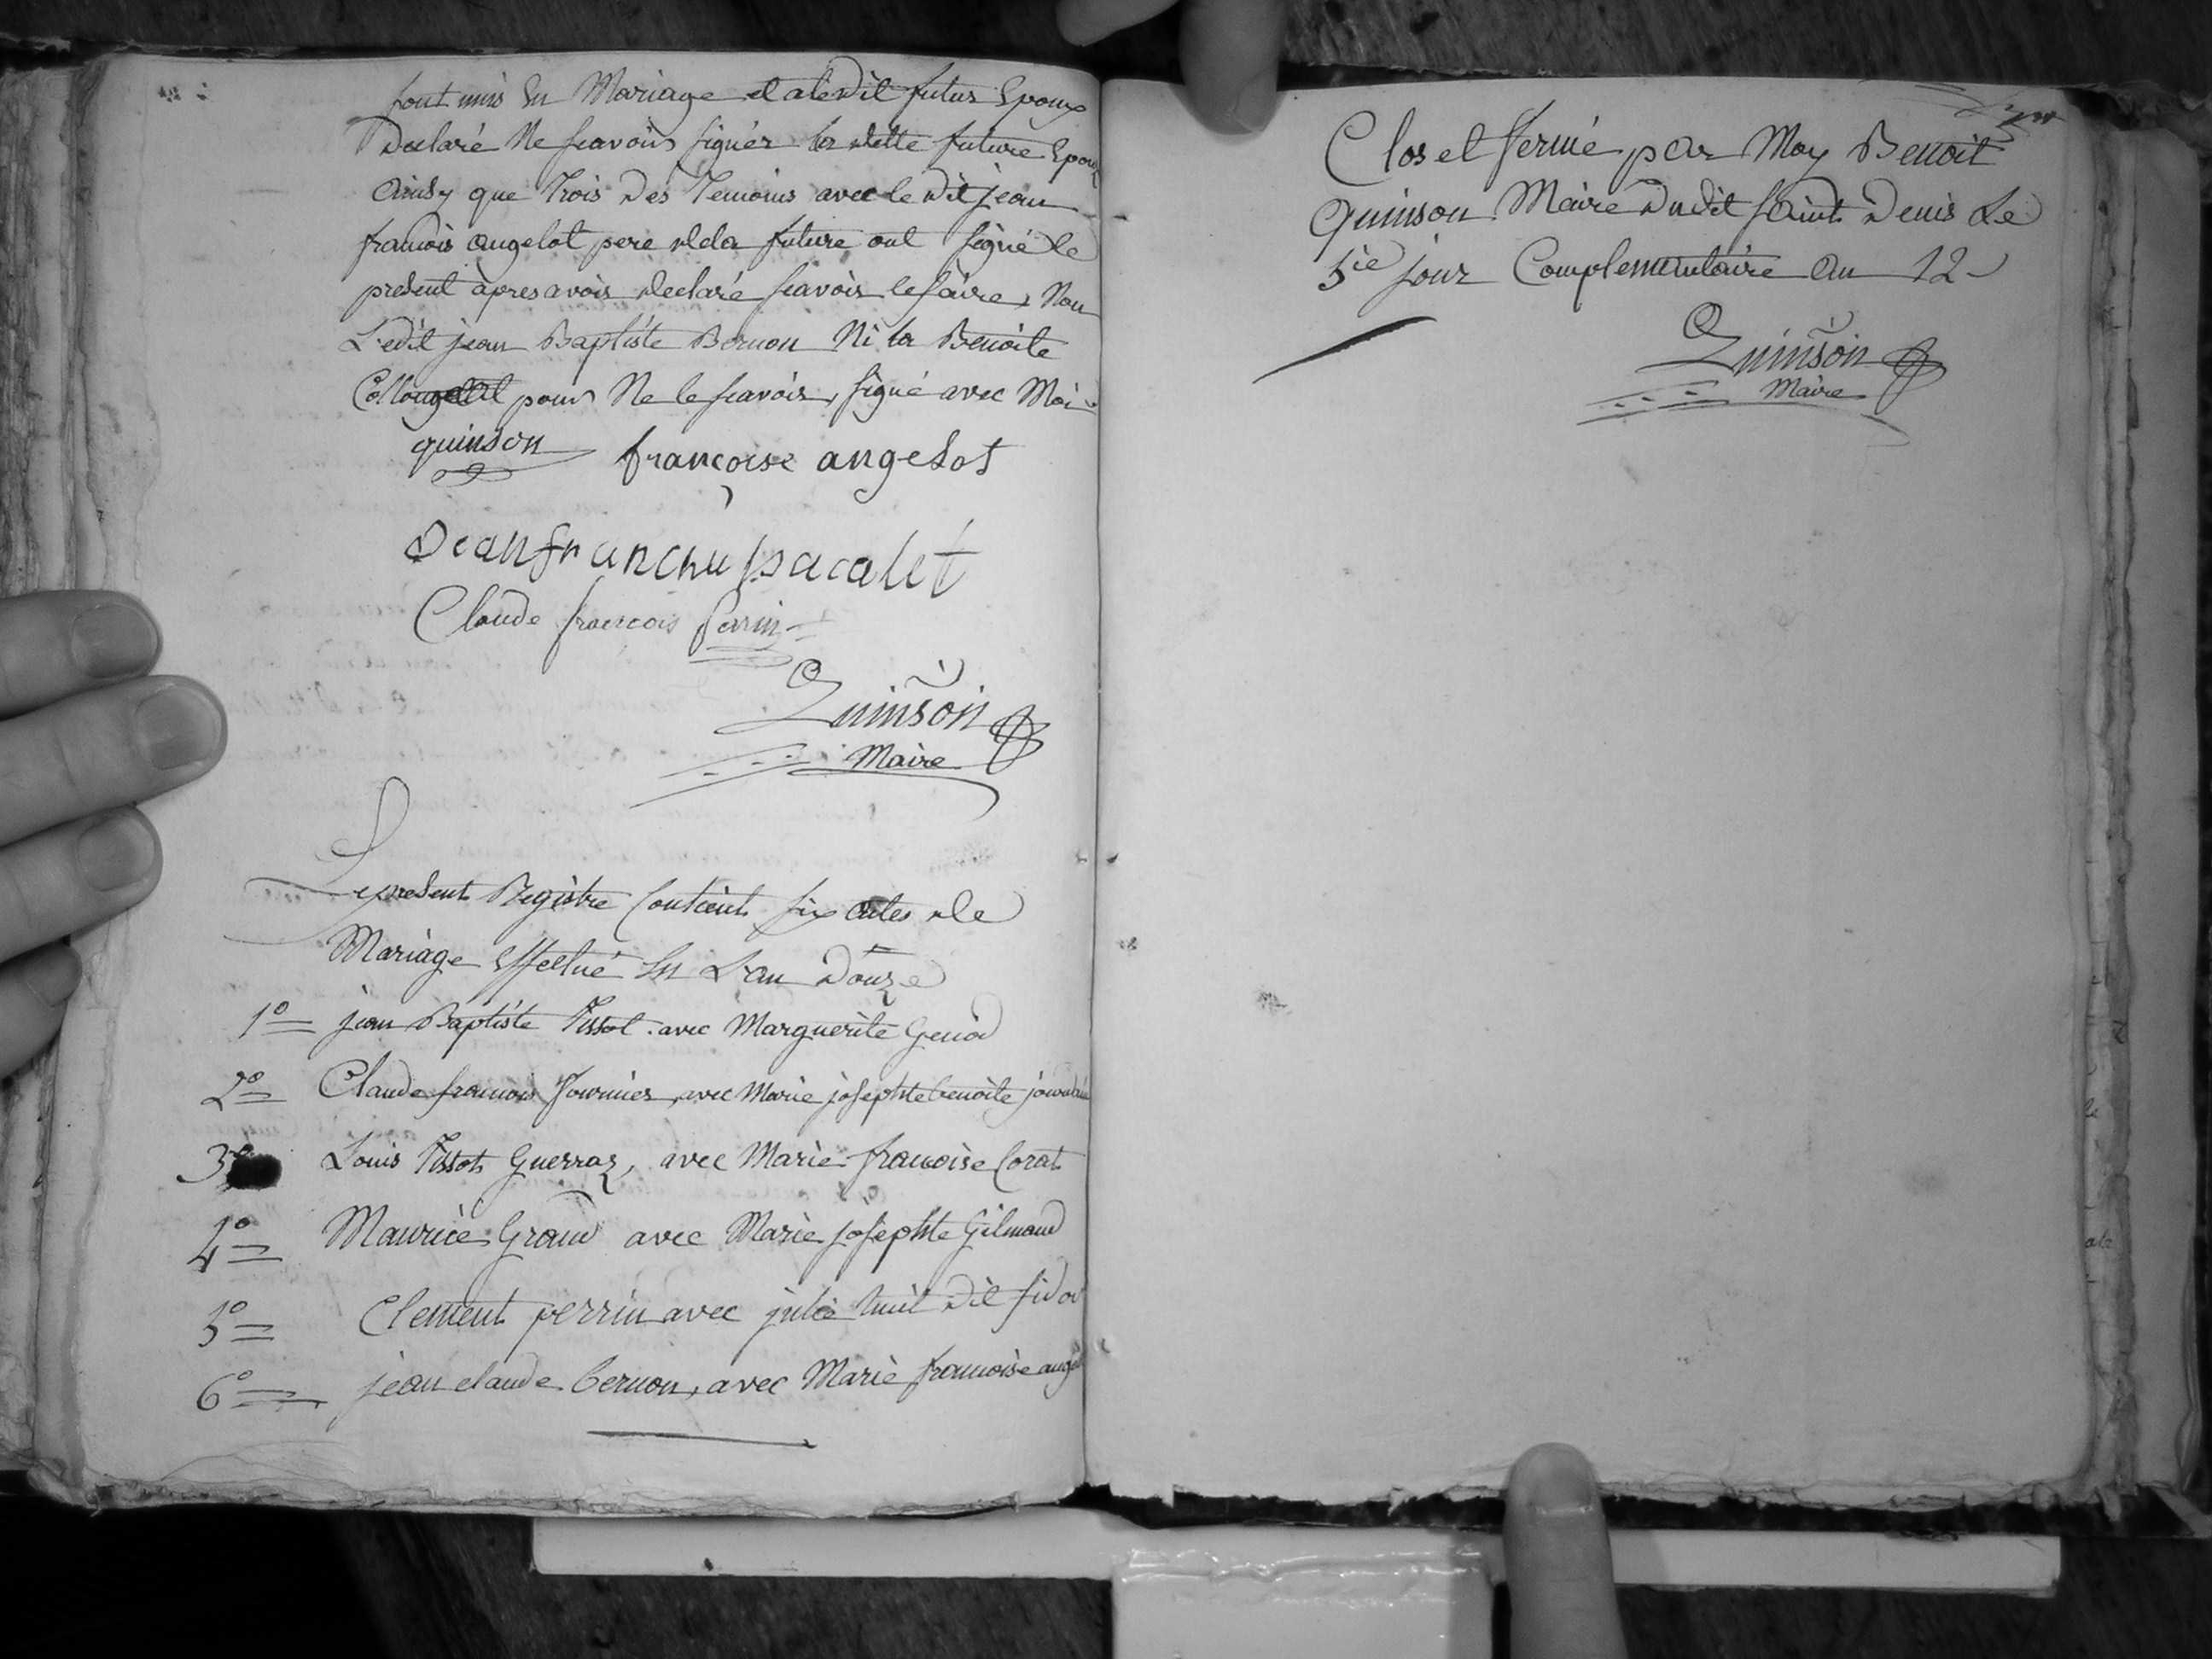 sont unis En Mariage et a ledit futur Epoux
Declaré Ne scavoir signér la ditte future Epouz
Ainsy que trois des Temoins avec le dit jean
francois angelot pere de la future ont signé le
present àpres avoir declaré scavoir le faire, Non
Ledit jean Baptiste Bernon Ni la Benoite
pour Ne le scavoir, signé avec Moi
quinson françoise angelot
Jean franchu pacalet
Claude francois Perrin
Quinson
Maire
Le present Registre Contient six actes de
Mariage Effectué En L'an Douze
1º jean Baptiste Tissot avec Marguerite Genod
2º Claude francois Fournier, avec Marie josephte benoite
3º Louis Tissot Guerraz, avec Marie francoise Corat
4º Maurice Grand avec Marie josephte Gilmand
5º Clement perrin avec julie dit
6º jean claude bernon, avec Marie francoise
Clos et fermé par Moy Benoit
Quinson Maire Dudit saint Denis Le
5ie jour Complementaire An 12
Quinson
Maire